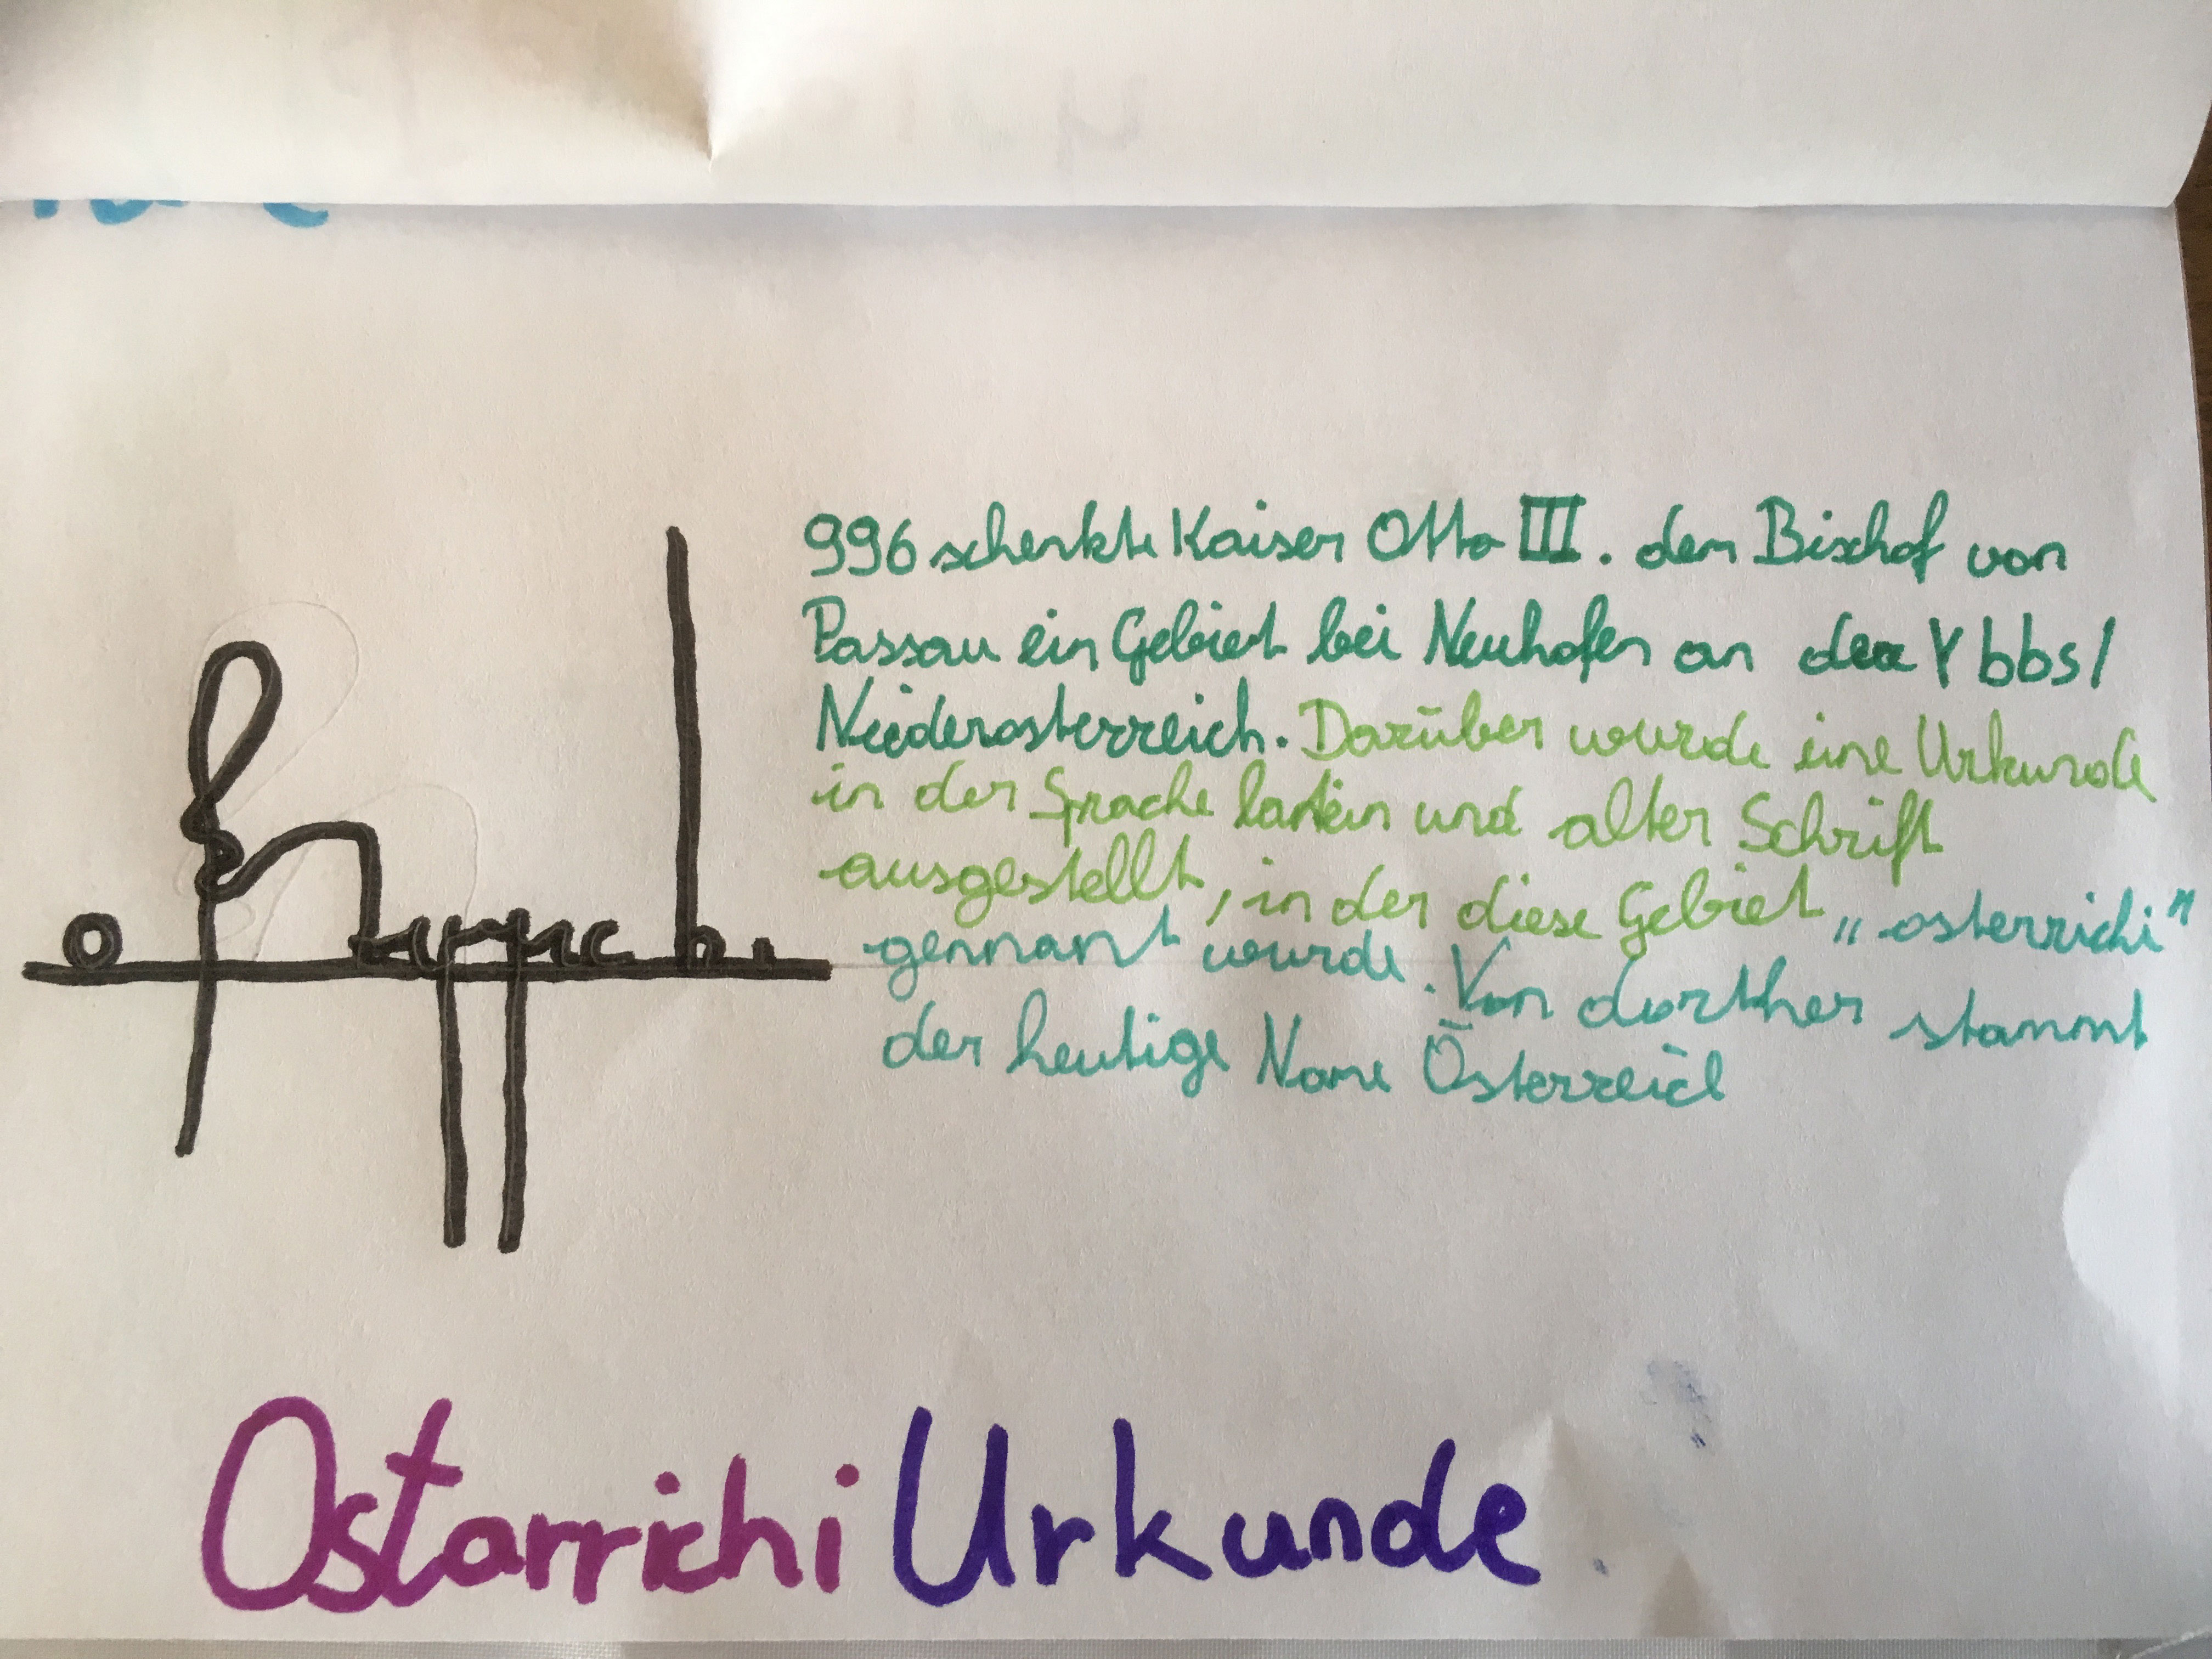 996 schenkte Kaiser Otto III. dem Bischof von
Passau ein Gebiet bei Neuhofen an der Ybbs/
Niederosterreich. Darüber wurde eine Urkunde
in der Sprache latein und alter Schrift
ausgestellt, in der diese Gebiet „osterrichi"
gennant wurde. Von dorther stammt
der heutige Name Österreich
Ostarrichi Urkunde